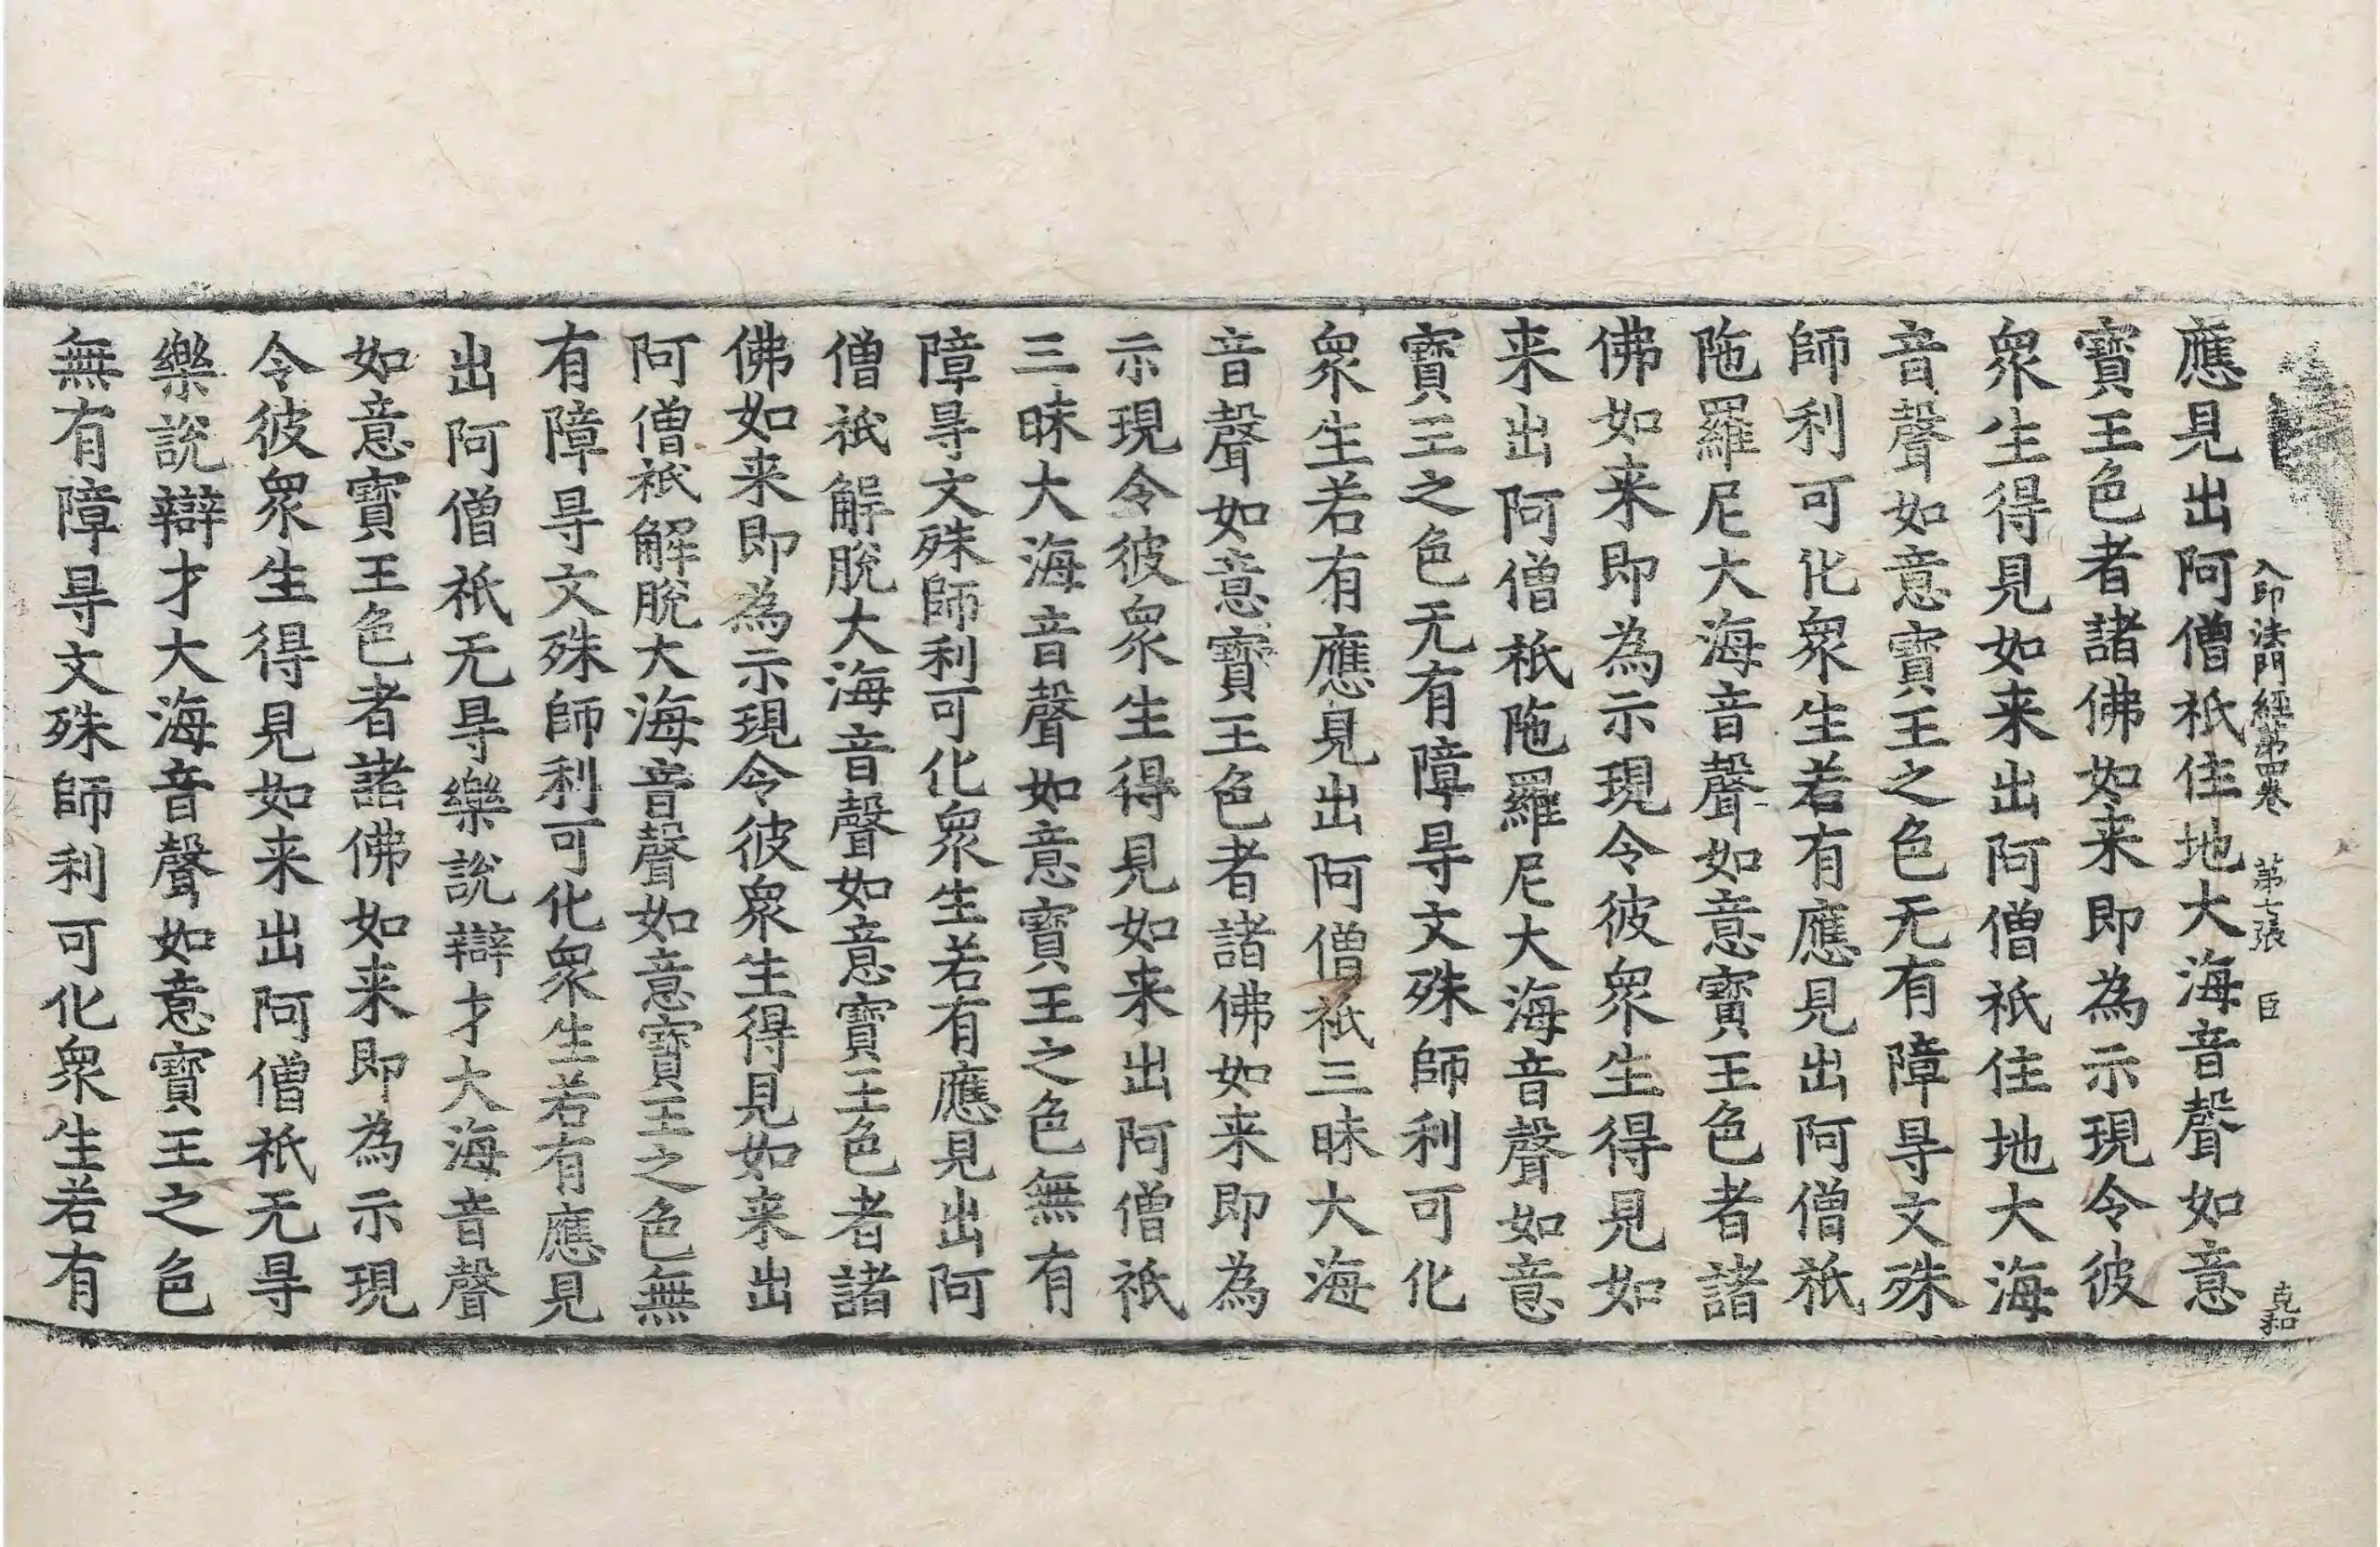 入印法門經第四卷 第七張 臣 克和
應見出阿僧祇住地大海音聲如意
寶王色者諸佛如来即為示現令彼
衆生得見如来出阿僧祇住地大海
音聲如意寶王之色无有障㝵文殊
師利可化衆生若有應見出阿僧祇
陁羅尼大海音聲如意寶王色者諸
佛如来即為示現令彼衆生得見如
来出阿僧祇陁羅尼大海音聲如意
寶王之色无有障㝵文殊師利可化
衆生若有應見出阿僧祇三昧大海
音聲如意寶王色者諸佛如来即為
示現令彼衆生得見如来出阿僧祇
三昧大海音聲如意寶王之色無有
障㝵文殊師利可化衆生若有應見出阿
僧祇解脫大海音聲如意寶王色者諸
佛如来即為示現令彼衆生得見如来出
阿僧祇解脫大海音聲如意寶王之色無
有障㝵文殊師利可化衆生若有應見
出阿僧祇无㝵樂説辯才大海音聲
如意寶王色者諸佛如来即為示現
令彼衆生得見如来出阿僧祇无㝵
樂説辯才大海音聲如意寶王之色
無有障㝵文殊師利可化衆生若有